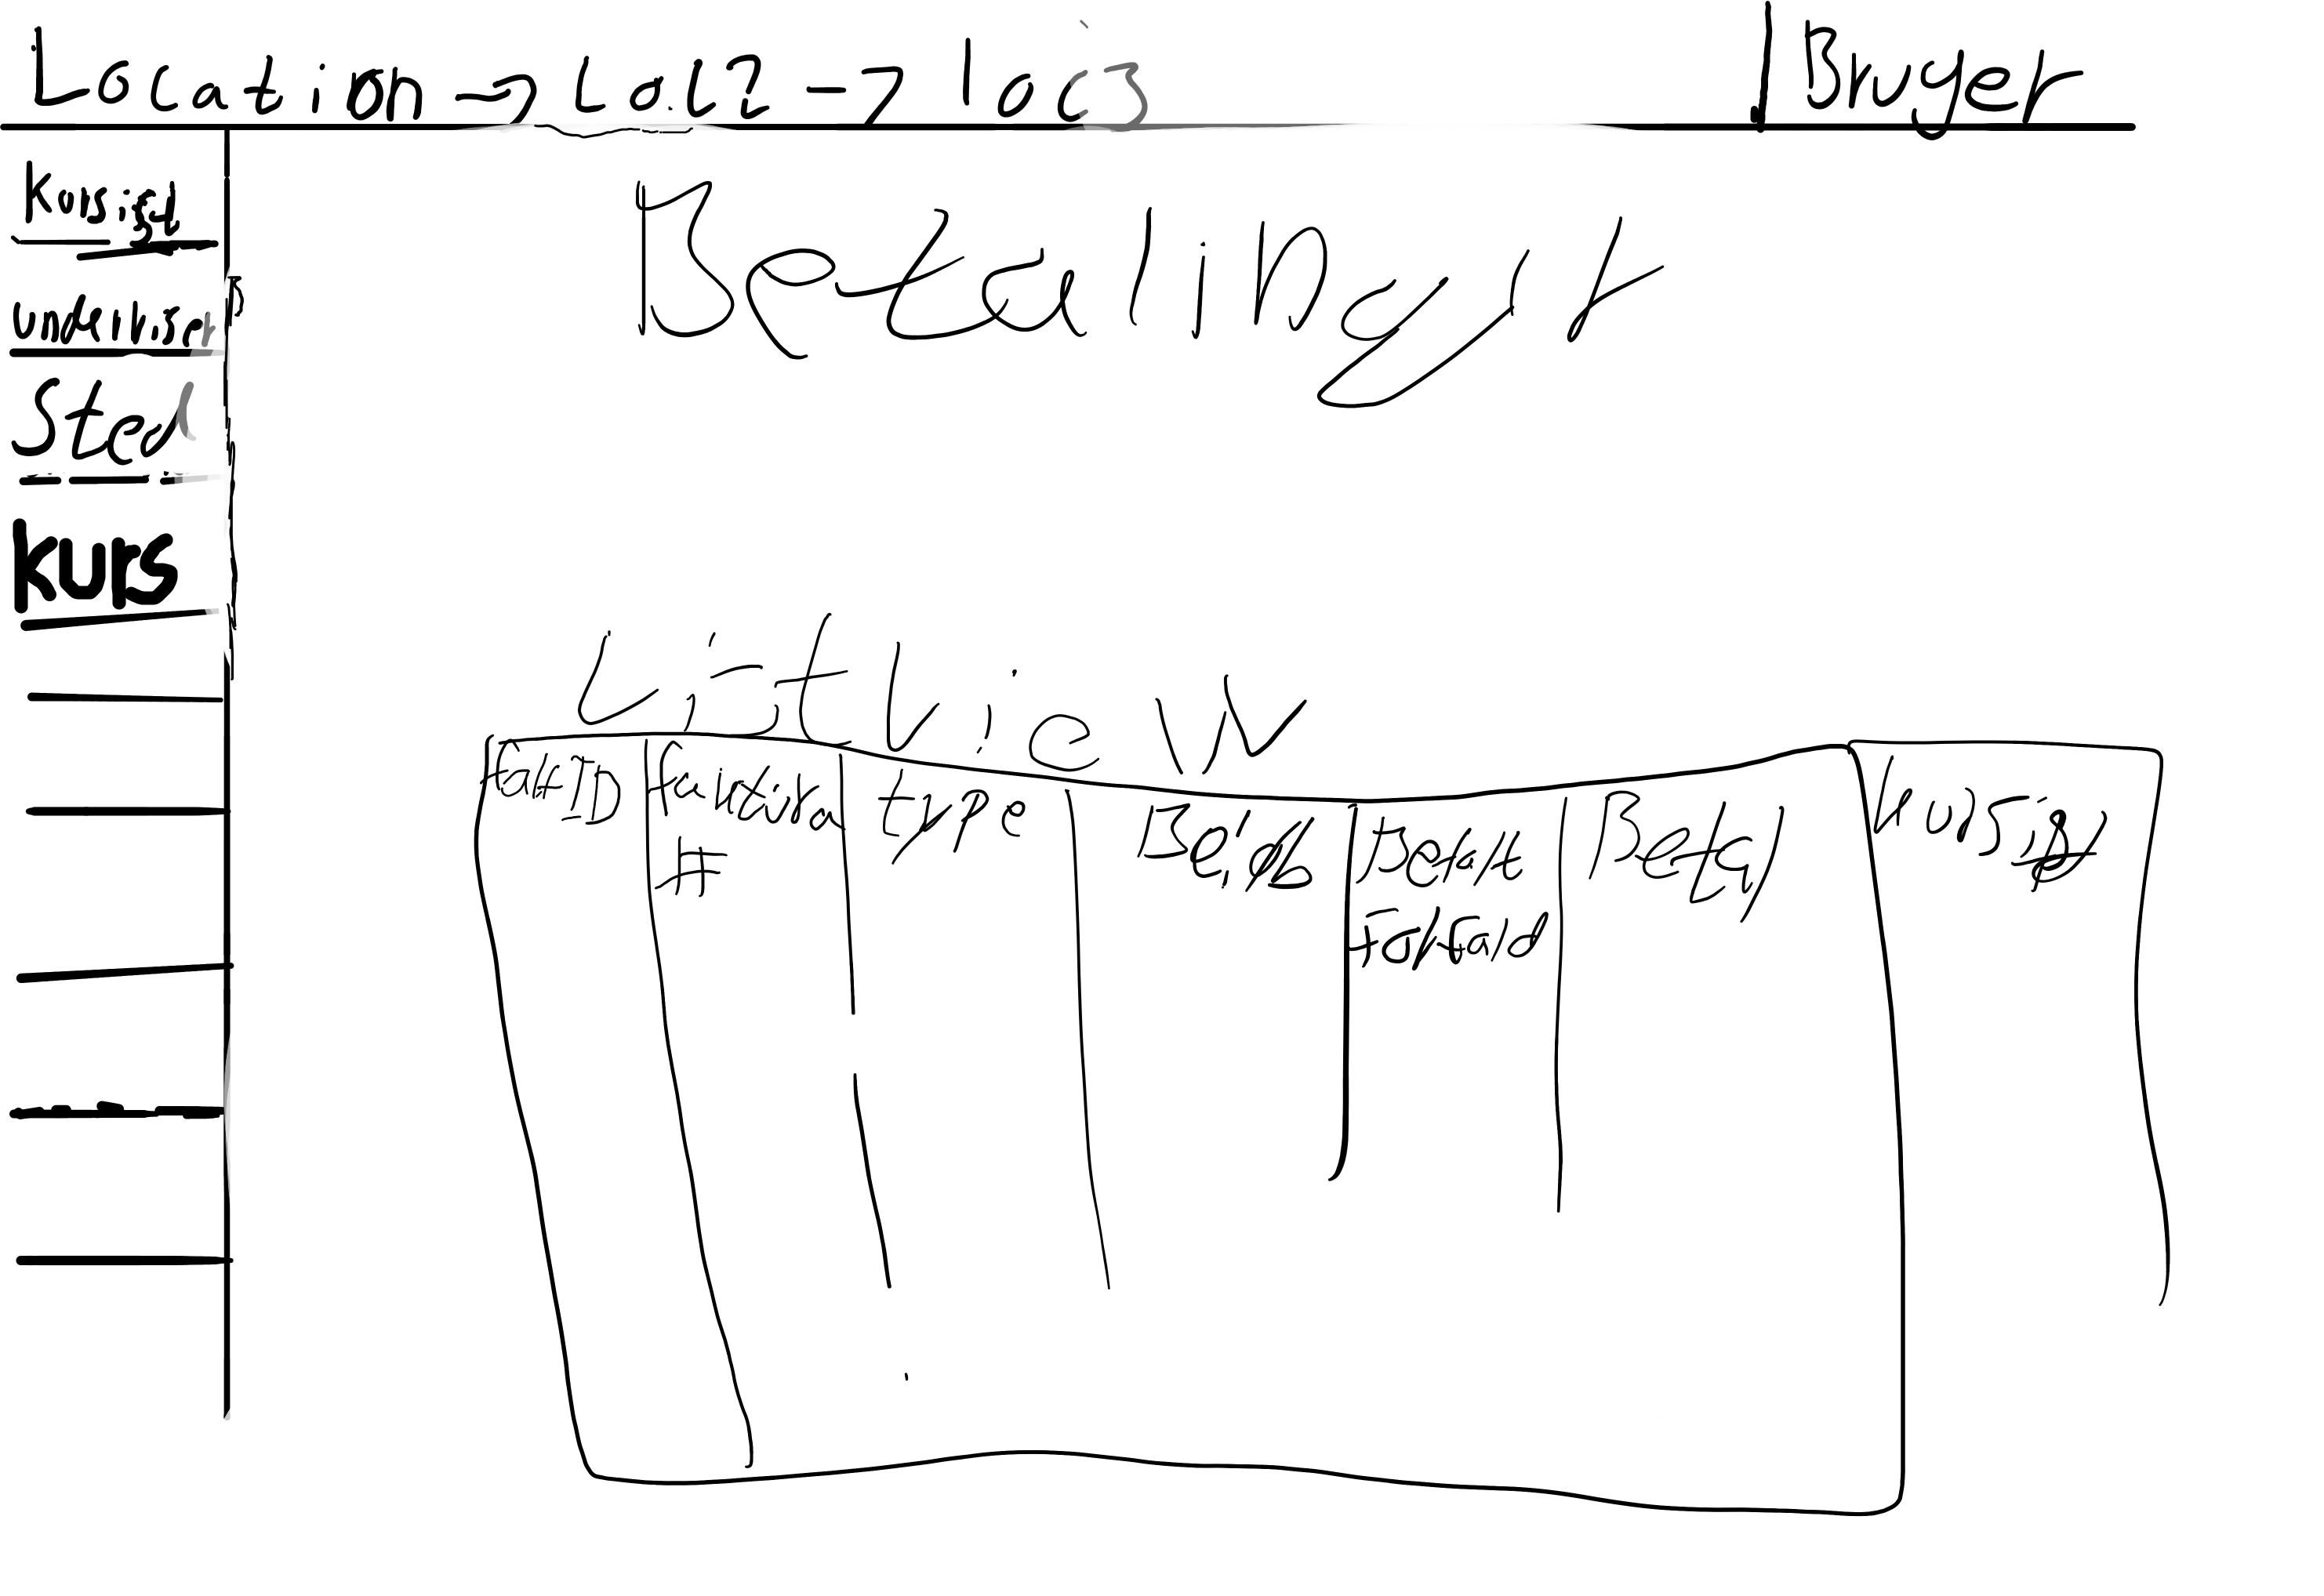 Location => Loc2 -> loc3
Bruger
Kursist
Underviser
Sted
kurs
Betalinger
ListView
Fakt ID
Faktura
#
type
Beløb
Dato
Forfald
Betal
Kursist